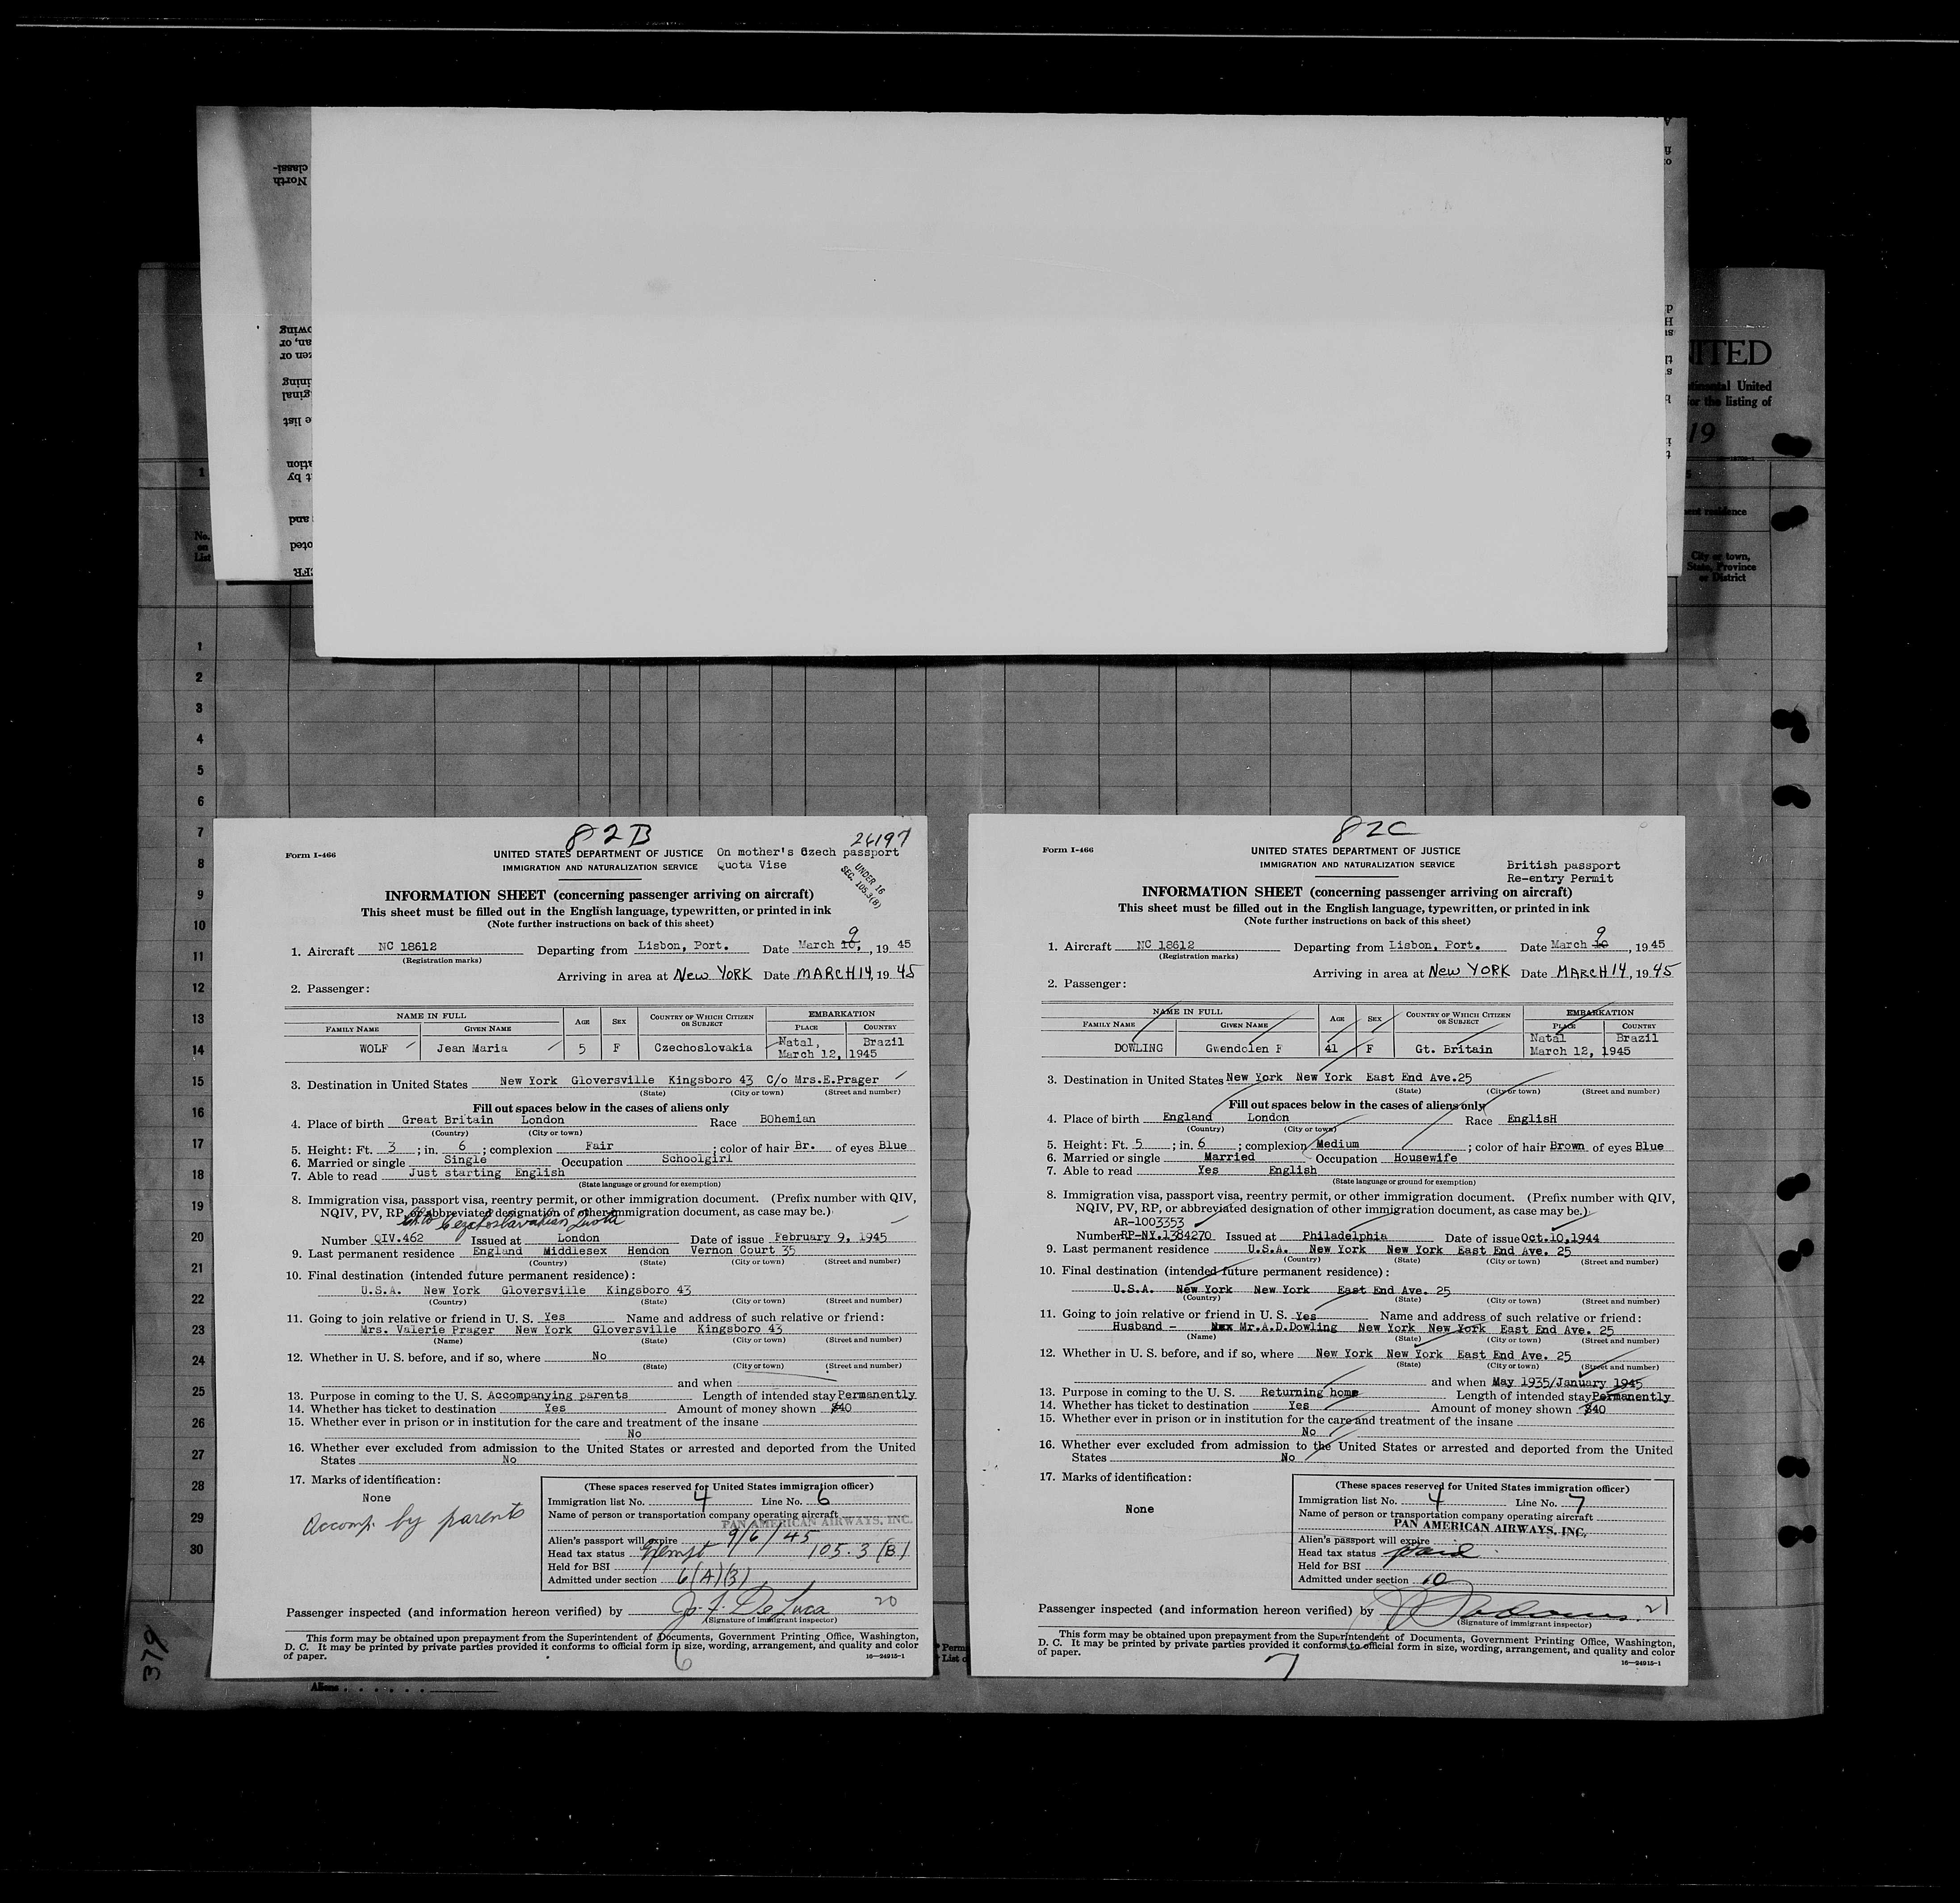 UNITED
ntinental United
or the listing of
19
City or town,
State, Province
or District
No.
on
List
1
2
3
4
5
6
7
8
9
10
11
12
13
14
15
16
17
18
19
20
21
22
23
24
25
26
27
28
29
30
379
82B
26197
Form I-466
UNITED STATES DEPARTMENT OF JUSTICE On mother's Czech passport
IMMIGRATION AND NATURALIZATION SERVICE Quota Vise
UNDER 16
SEC. 105.3(B)
INFORMATION SHEET (concerning passenger arriving on aircraft)
This sheet must be filled out in the English language, typewritten, or printed in ink
(Note further instructions on back of this sheet)
9
1. Aircraft NC 18612 Departing from Lisbon, Port. Date March 10, 1945
(Registration marks)
Arriving in area at New YORK Date MARCH 14, 1945
2. Passenger:
NAME IN FULL AGE SEX COUNTRY OF WHICH CITIZEN OR SUBJECT EMBARKATION
FAMILY NAME GIVEN NAME PLACE COUNTRY
WOLF Jean Maria 5 F Czechoslovakia Natal, Brazil
March 12, 1945
3. Destination in United States New York Gloversville Kingsboro 43 C/o Mrs.E.Prager
(State) (City or town) (Street and number)
Fill out spaces below in the cases of aliens only
4. Place of birth Great Britain London Race BOhemian
(Country) (City or town)
5. Height: Ft. 3 ; in. 6 ; complexion Fair ; color of hair Br. of eyes Blue
6. Married or single Single Occupation Schoolgirl
7. Able to read Just starting English
(State language or ground for exemption)
8. Immigration visa, passport visa, reentry permit, or other immigration document. (Prefix number with QIV,
NQIV, PV, RP, or abbreviated designation of other immigration document, as case may be.)
Czechoslovakian Quota
Number QIV.462 Issued at London Date of issue February 9, 1945
9. Last permanent residence England Middlesex Hendon Vernon Court 35
(Country) (State) (City or town) (Street and number)
10. Final destination (intended future permanent residence):
U.S.A. New York Gloversville Kingsboro 43
(Country) (State) (City or town) (Street and number)
11. Going to join relative or friend in U. S. Yes Name and address of such relative or friend:
Mrs. Valerie Prager New York Gloversville Kingsboro 43
(Name) (State) (City or town) (Street and number)
12. Whether in U. S. before, and if so, where No
(State) (City or town) (Street and number)
and when
13. Purpose in coming to the U. S. Accompanying parents Length of intended stay Permanently
14. Whether has ticket to destination Yes Amount of money shown $40
15. Whether ever in prison or in institution for the care and treatment of the insane
No
16. Whether ever excluded from admission to the United States or arrested and deported from the United
States No
17. Marks of identification:
None
Accomp. by parents
(These spaces reserved for United States immigration officer)
Immigration list No. 4 Line No. 6
Name of person or transportation company operating aircraft
PAN AMERICAN AIRWAYS, INC.
Alien's passport will expire 9/6/45
Head tax status Exempt 105.3 (B)
Held for BSI
Admitted under section 6(A)(3)
Passenger inspected (and information hereon verified) by Jo. F. De Luca 20
(Signature of immigrant inspector)
This form may be obtained upon prepayment from the Superintendent of Documents, Government Printing Office, Washington,
D. C. It may be printed by private parties provided it conforms to official form in size, wording, arrangement, and quality and color
of paper. 16—24915-1
6
82C
Form I-466
UNITED STATES DEPARTMENT OF JUSTICE
IMMIGRATION AND NATURALIZATION SERVICE
British passport
Re-entry Permit
INFORMATION SHEET (concerning passenger arriving on aircraft)
This sheet must be filled out in the English language, typewritten, or printed in ink
(Note further instructions on back of this sheet)
9
1. Aircraft NC 18612 Departing from Lisbon, Port. Date March 10, 1945
(Registration marks)
Arriving in area at New YORK Date MARCH 14, 1945
2. Passenger:
NAME IN FULL AGE SEX COUNTRY OF WHICH CITIZEN OR SUBJECT EMBARKATION
FAMILY NAME GIVEN NAME PLACE COUNTRY
DOWLING Gwendolen F 41 F Gt. Britain Natal Brazil
March 12, 1945
3. Destination in United States New York New York East End Ave.25
(State) (City or town) (Street and number)
Fill out spaces below in the cases of aliens only
4. Place of birth England London Race EnglisH
(Country) (City or town)
5. Height: Ft. 5 ; in. 6 ; complexion Medium ; color of hair Brown of eyes Blue
6. Married or single Married Occupation Housewife
7. Able to read Yes English
(State language or ground for exemption)
8. Immigration visa, passport visa, reentry permit, or other immigration document. (Prefix number with QIV,
NQIV, PV, RP, or abbreviated designation of other immigration document, as case may be.)
AR-1003353
Number RP-NY.1384270 Issued at Philadelphia Date of issue Oct.10,1944
9. Last permanent residence U.S.A. New York New York East End Ave. 25
(Country) (State) (City or town) (Street and number)
10. Final destination (intended future permanent residence):
U.S.A. New York New York East End Ave. 25
(Country) (State) (City or town) (Street and number)
11. Going to join relative or friend in U. S. Yes Name and address of such relative or friend:
Husband - Mr.A.D.Dowling New York New York East End Ave. 25
(Name) (State) (City or town) (Street and number)
12. Whether in U. S. before, and if so, where New York New York East End Ave. 25
(State) (City or town) (Street and number)
and when May 1935/January 1945
13. Purpose in coming to the U. S. Returning home Length of intended stay Permanently
14. Whether has ticket to destination Yes Amount of money shown $40
15. Whether ever in prison or in institution for the care and treatment of the insane
No
16. Whether ever excluded from admission to the United States or arrested and deported from the United
States No
17. Marks of identification:
None
(These spaces reserved for United States immigration officer)
Immigration list No. 4 Line No. 7
Name of person or transportation company operating aircraft
PAN AMERICAN AIRWAYS, INC.
Alien's passport will expire
Head tax status paid
Held for BSI
Admitted under section 10
Passenger inspected (and information hereon verified) by 21
(Signature of immigrant inspector)
This form may be obtained upon prepayment from the Superintendent of Documents, Government Printing Office, Washington,
D. C. It may be printed by private parties provided it conforms to official form in size, wording, arrangement, and quality and color
of paper. 16—24915-1
7
Aliens